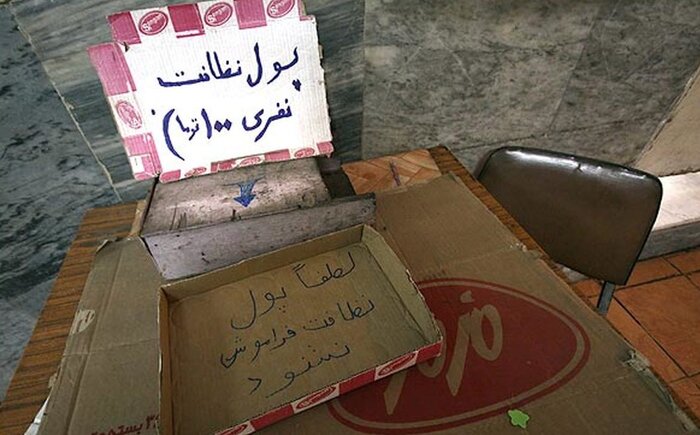 پول نظافت
نفری ۱۰۰ (تومان)
لطفاً پول
نظافت فراموش
نشود
مزمز